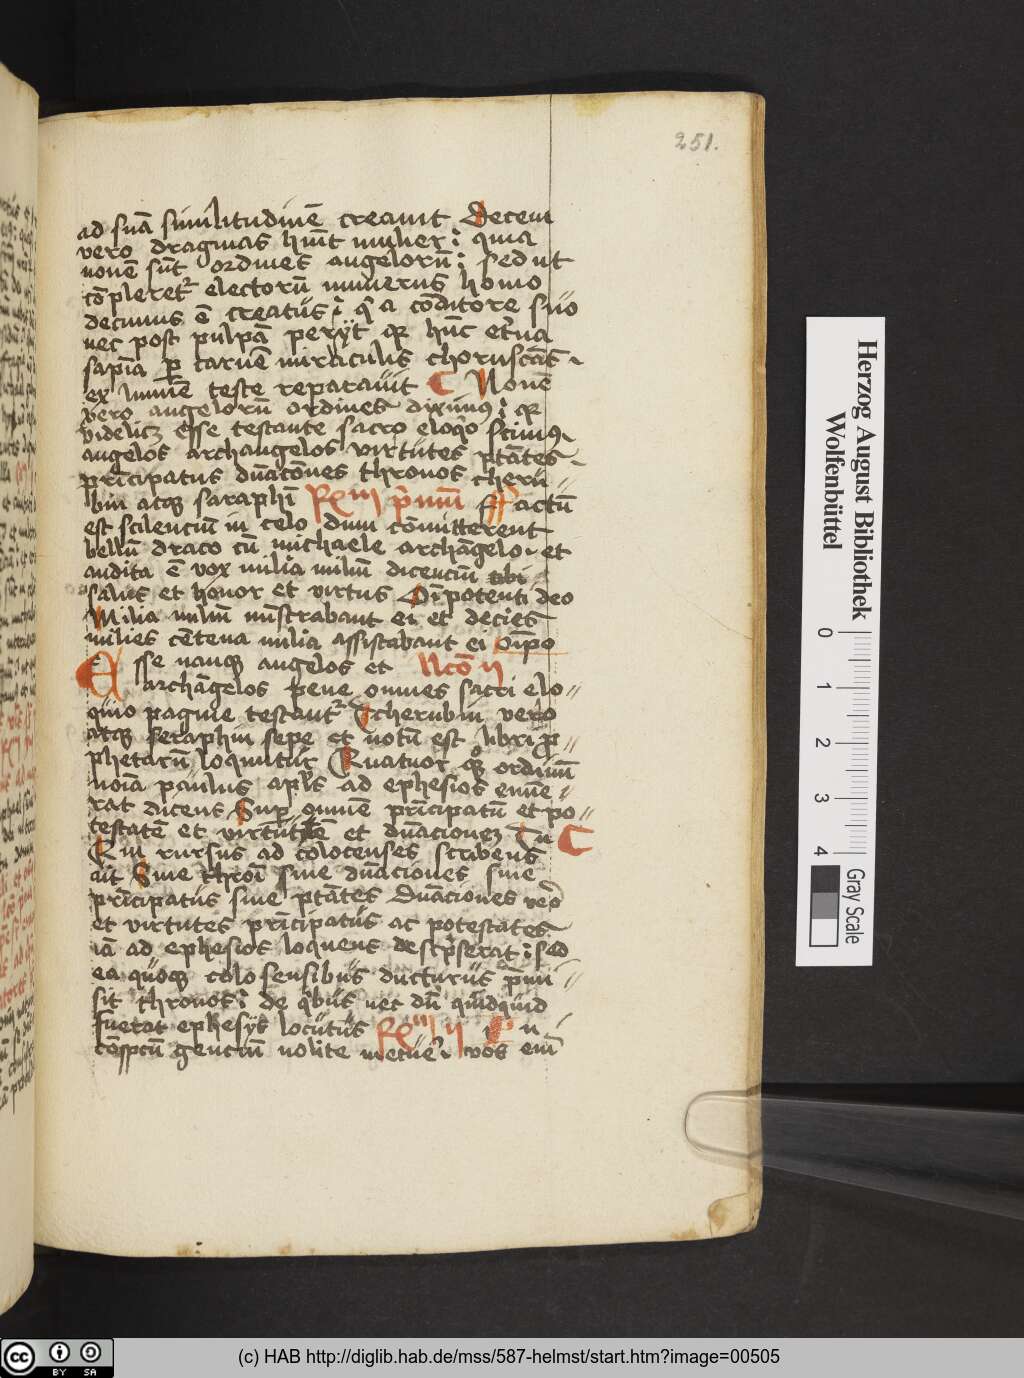 251.
ad suā similitudinē creauit Decem
vero dragmas hūit mulier : quia
nouē sūt ordines angelorū : sed ut
cōpleret electorū numerus homo
decimus ē creatus : q a cōditore suo
nec post pulpā perijt hūc et'na
sapīa p carnē miraculis choruscās
ex limiē teste reparauit Nouē
vero angelorū ordines diximus : q
videlicz esse testante sacro eloqio scimus
angelos archangelos virtutes ptātes
prīcipatus dnātōnes thronos cheru
bin atq saraphī Rm p'mum Factū
est scilenciū in celo dum cōmitterent
bellū draco cū michaele archāgelo et
audita ē vox milia miliū dicenciū
salus et honor et virtus Oīpotenti deo
Milia miliū mīstrabant ei et decies
milies cētena milia assistabant ei oīpo
Esse nanq angelos et lcō ii
archāgelos pene omnes sacri elo
quio pagine testant' cherubin vero
atq seraphin sepe et notū est libri p
phetarū loquuntur Quatuor q ordinū
noīa paulus apls ad ephesios enūe
rat dicens Supr omnē prīcipatū et po
testatē et virtutē et dnacionez
Qui rursus ad colocenses scribens
ait Siue throī siue dnāciones siue
prīcipatus siue ptātes Dnāciones vero
et virtutes prīcipatus ac potestates
iā ad ephesios loquens descpserat : sed
ea quoq colosensibus dicturus p̄mi
sit thronos : de qbus nec dū quidquid
fuerat ephesijs locutus Rm ii In
cōspctū gentiū nolite metuere vos enī
Herzog August Bibliothek
Wolfenbüttel
0 1 2 3 4
Gray Scale
cc BY SA
(c) HAB http://diglib.hab.de/mss/587-helmst/start.htm?image=00505